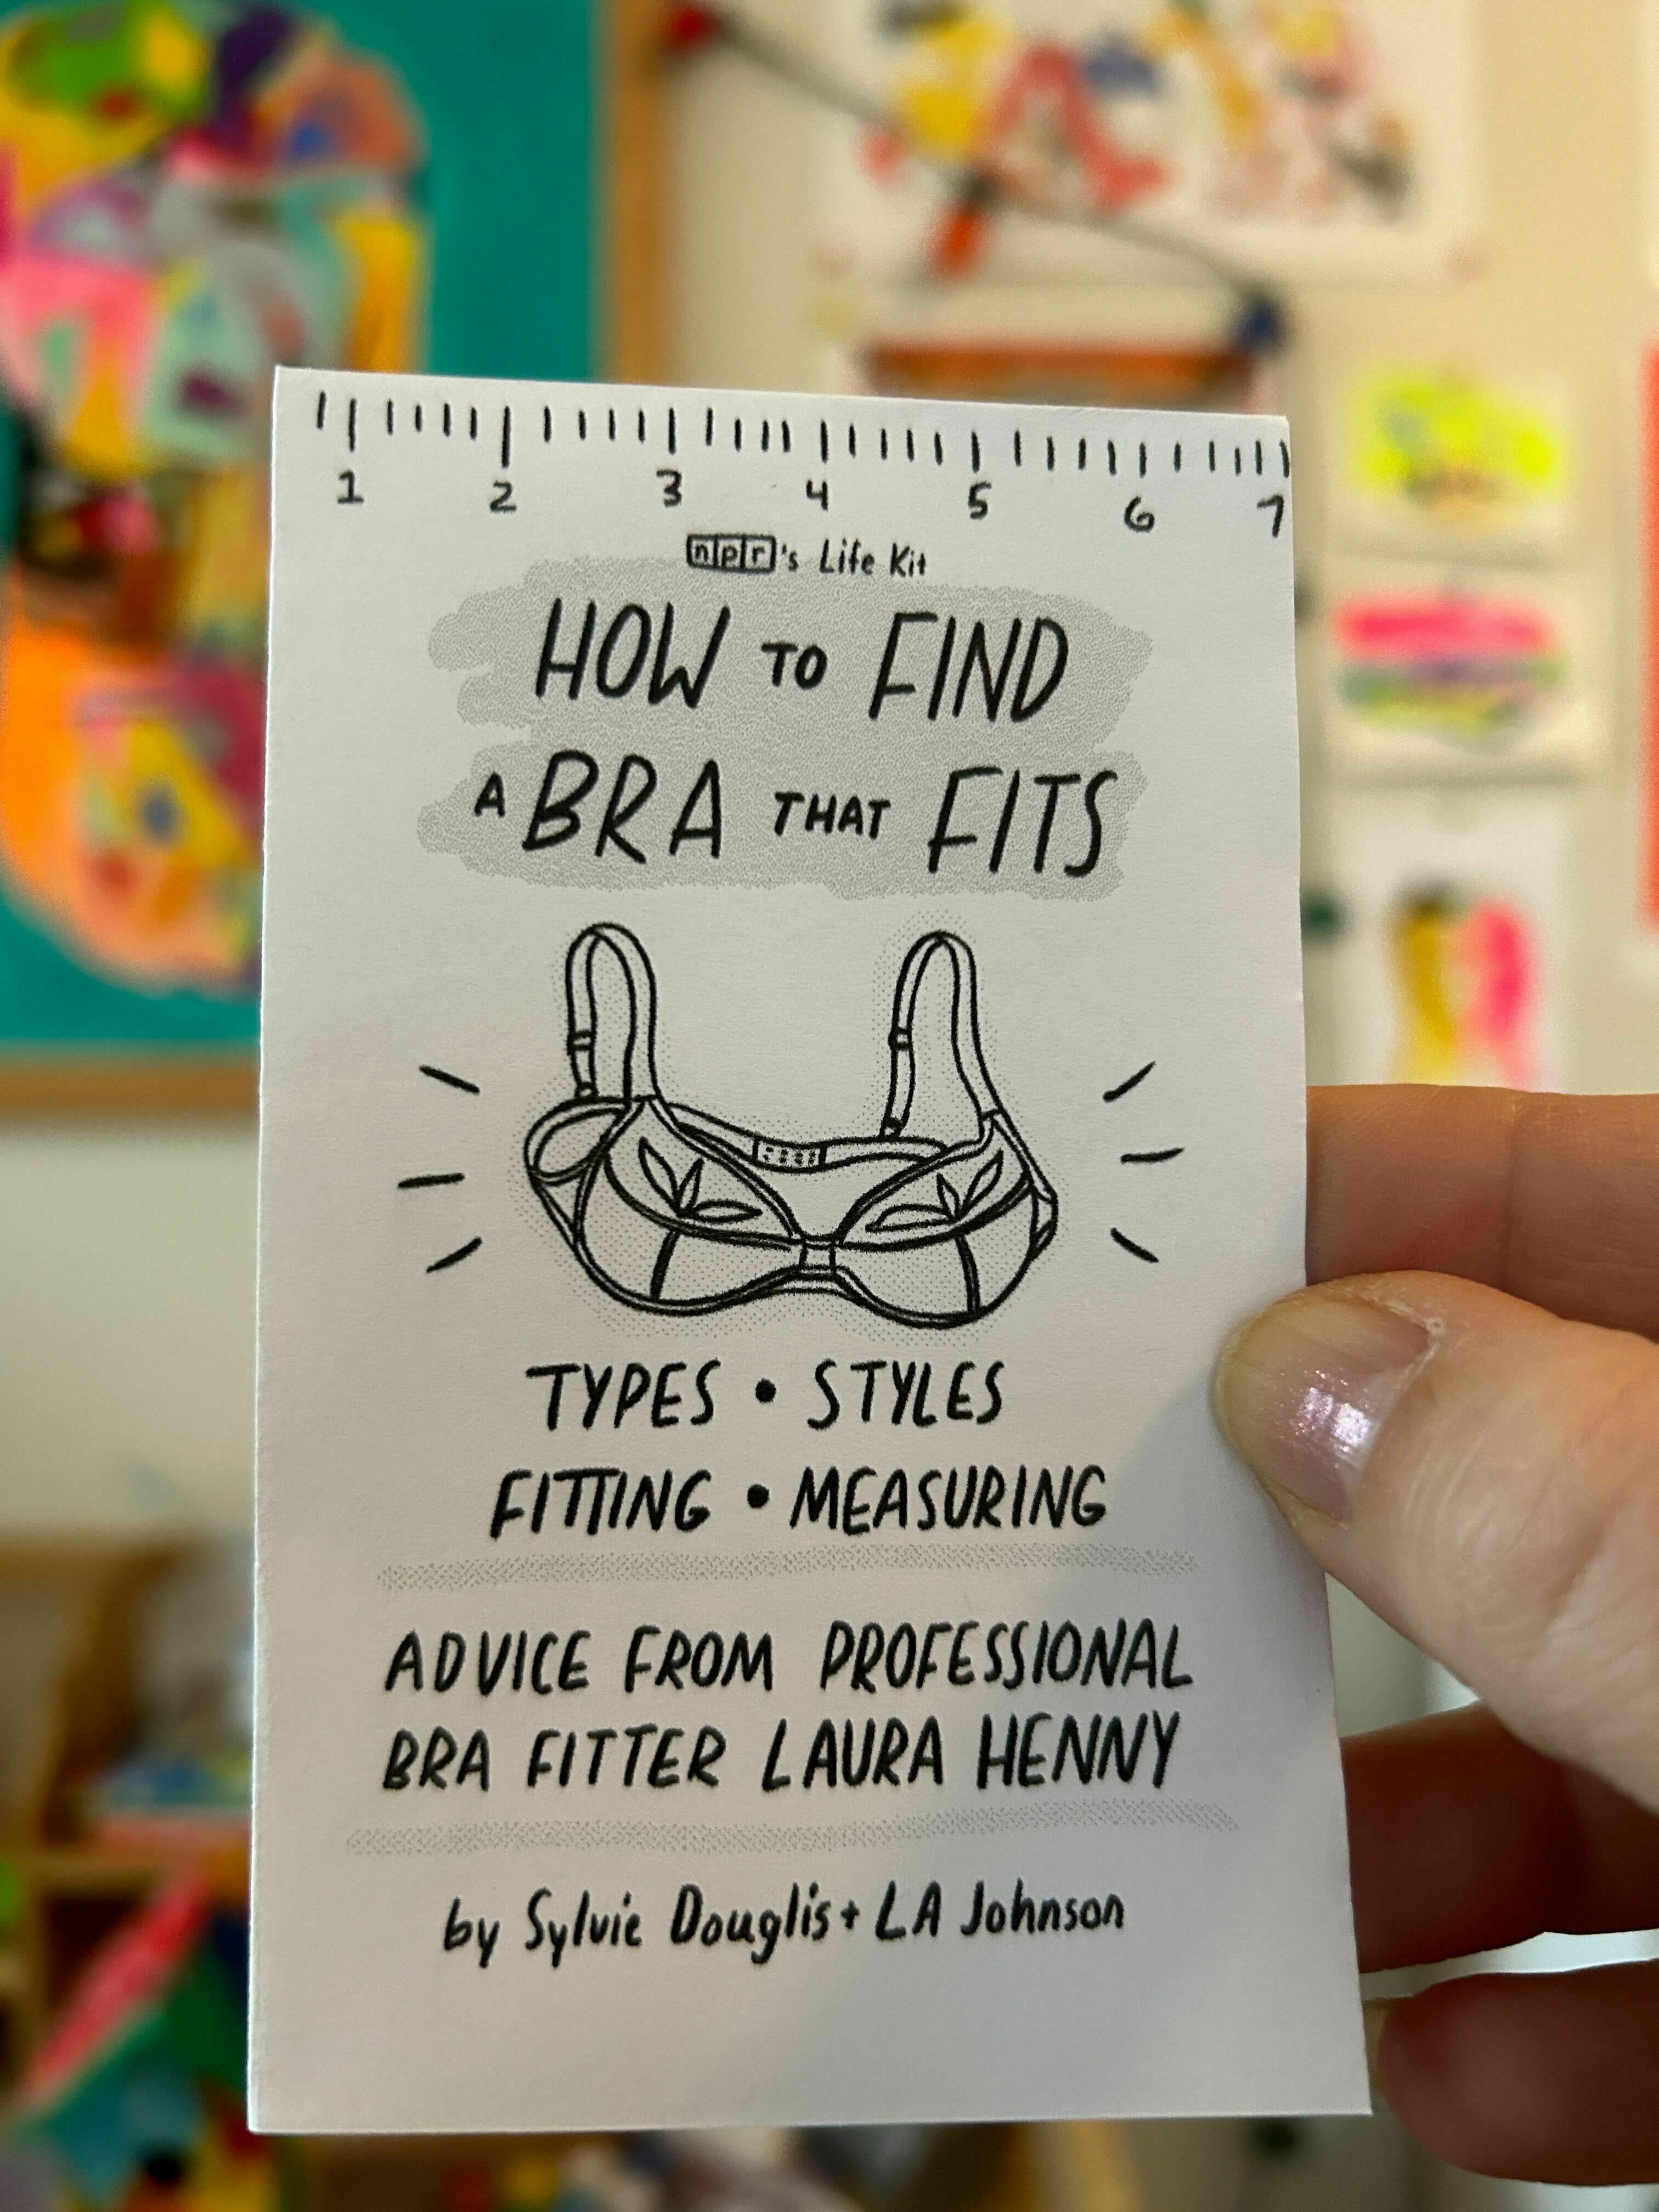 1 2 3 4 5 6 7
npr's Life Kit
HOW TO FIND
A BRA THAT FITS
TYPES • STYLES
FITTING • MEASURING
ADVICE FROM PROFESSIONAL
BRA FITTER LAURA HENNY
by Sylvie Douglis + LA Johnson